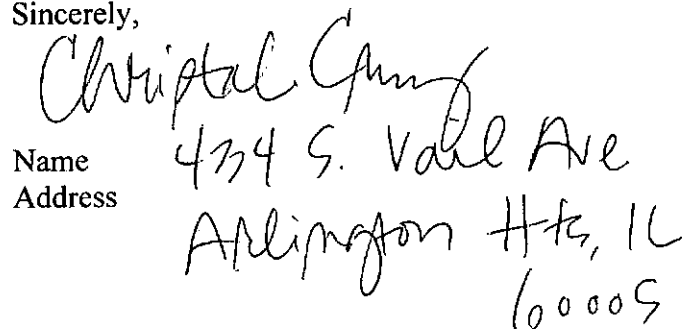 Sincerely,
Christal
Name 434 S. Vail Ave
Address
Arlington Hts, IL
60005